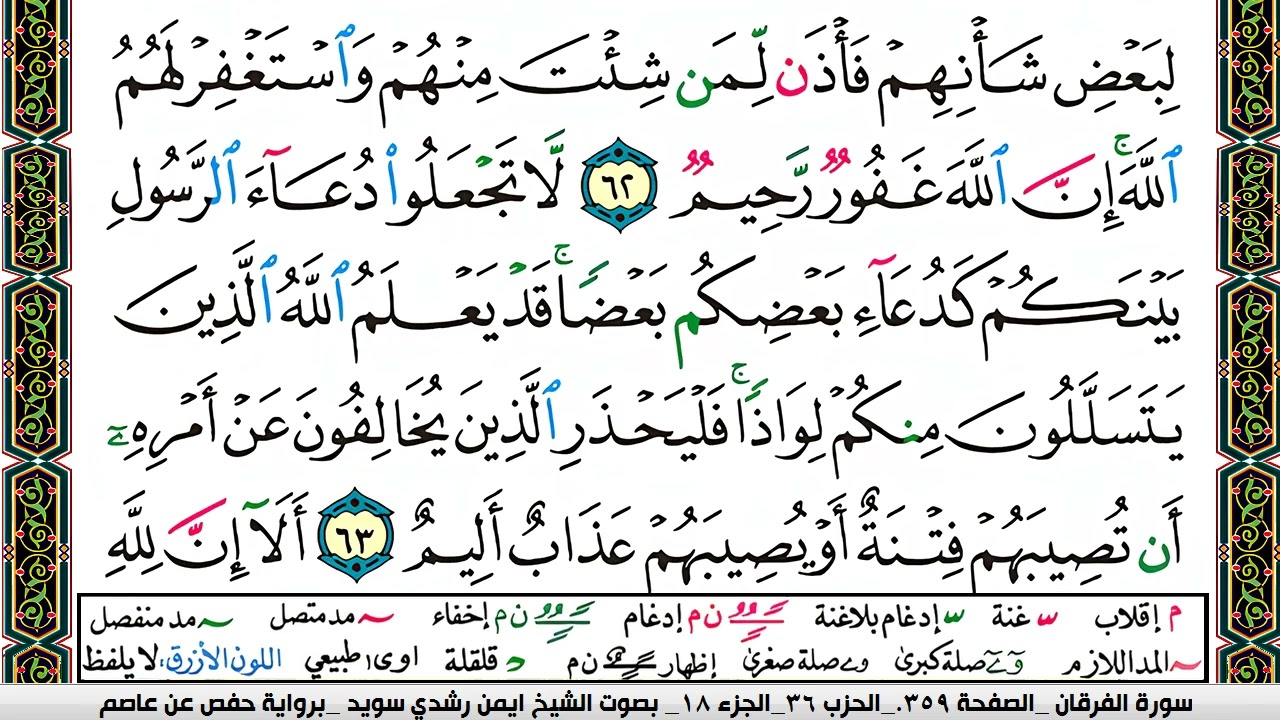 لِبَعْضِ شَأْنِهِمْ فَأْذَن لِّمَن شِئْتَ مِنْهُمْ وَٱسْتَغْفِرْ لَهُمُ
ٱللَّهَ ۚ إِنَّ ٱللَّهَ غَفُورٌ رَّحِيمٌ ٦٢ لَّا تَجْعَلُوا۟ دُعَآءَ ٱلرَّسُولِ
بَيْنَكُمْ كَدُعَآءِ بَعْضِكُم بَعْضًا ۚ قَدْ يَعْلَمُ ٱللَّهُ ٱلَّذِينَ
يَتَسَلَّلُونَ مِنكُمْ لِوَاذًا ۚ فَلْيَحْذَرِ ٱلَّذِينَ يُخَالِفُونَ عَنْ أَمْرِهِۦٓ
أَن تُصِيبَهُمْ فِتْنَةٌ أَوْ يُصِيبَهُمْ عَذَابٌ أَلِيمٌ ٦٣ أَلَآ إِنَّ لِلَّهِ
م إقلاب غنة إدغام بلاغنة ن م إدغام ن م إخفاء مد متصل مد منفصل
المد اللازم صلة كبرى صلة صغرى إظهار ن م قلقلة اوى طبيعي اللون الأزرق، لا يلفظ
سورة الفرقان _الصفحة ٣٥٩._الحزب ٣٦_الجزء ١٨_ بصوت الشيخ ايمن رشدي سويد _برواية حفص عن عاصم